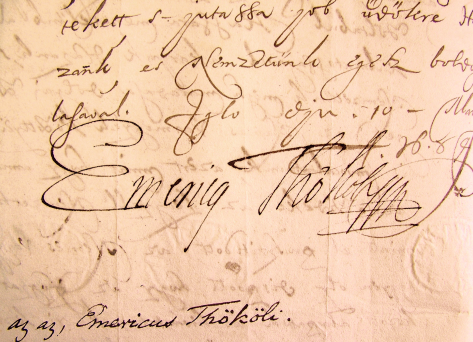 tekett s jutassa job üdőkre
zánk es Nemzetünk egesz
lásával. Iglo die 10
Emericus Thököly
az az, Emericus Thököli.